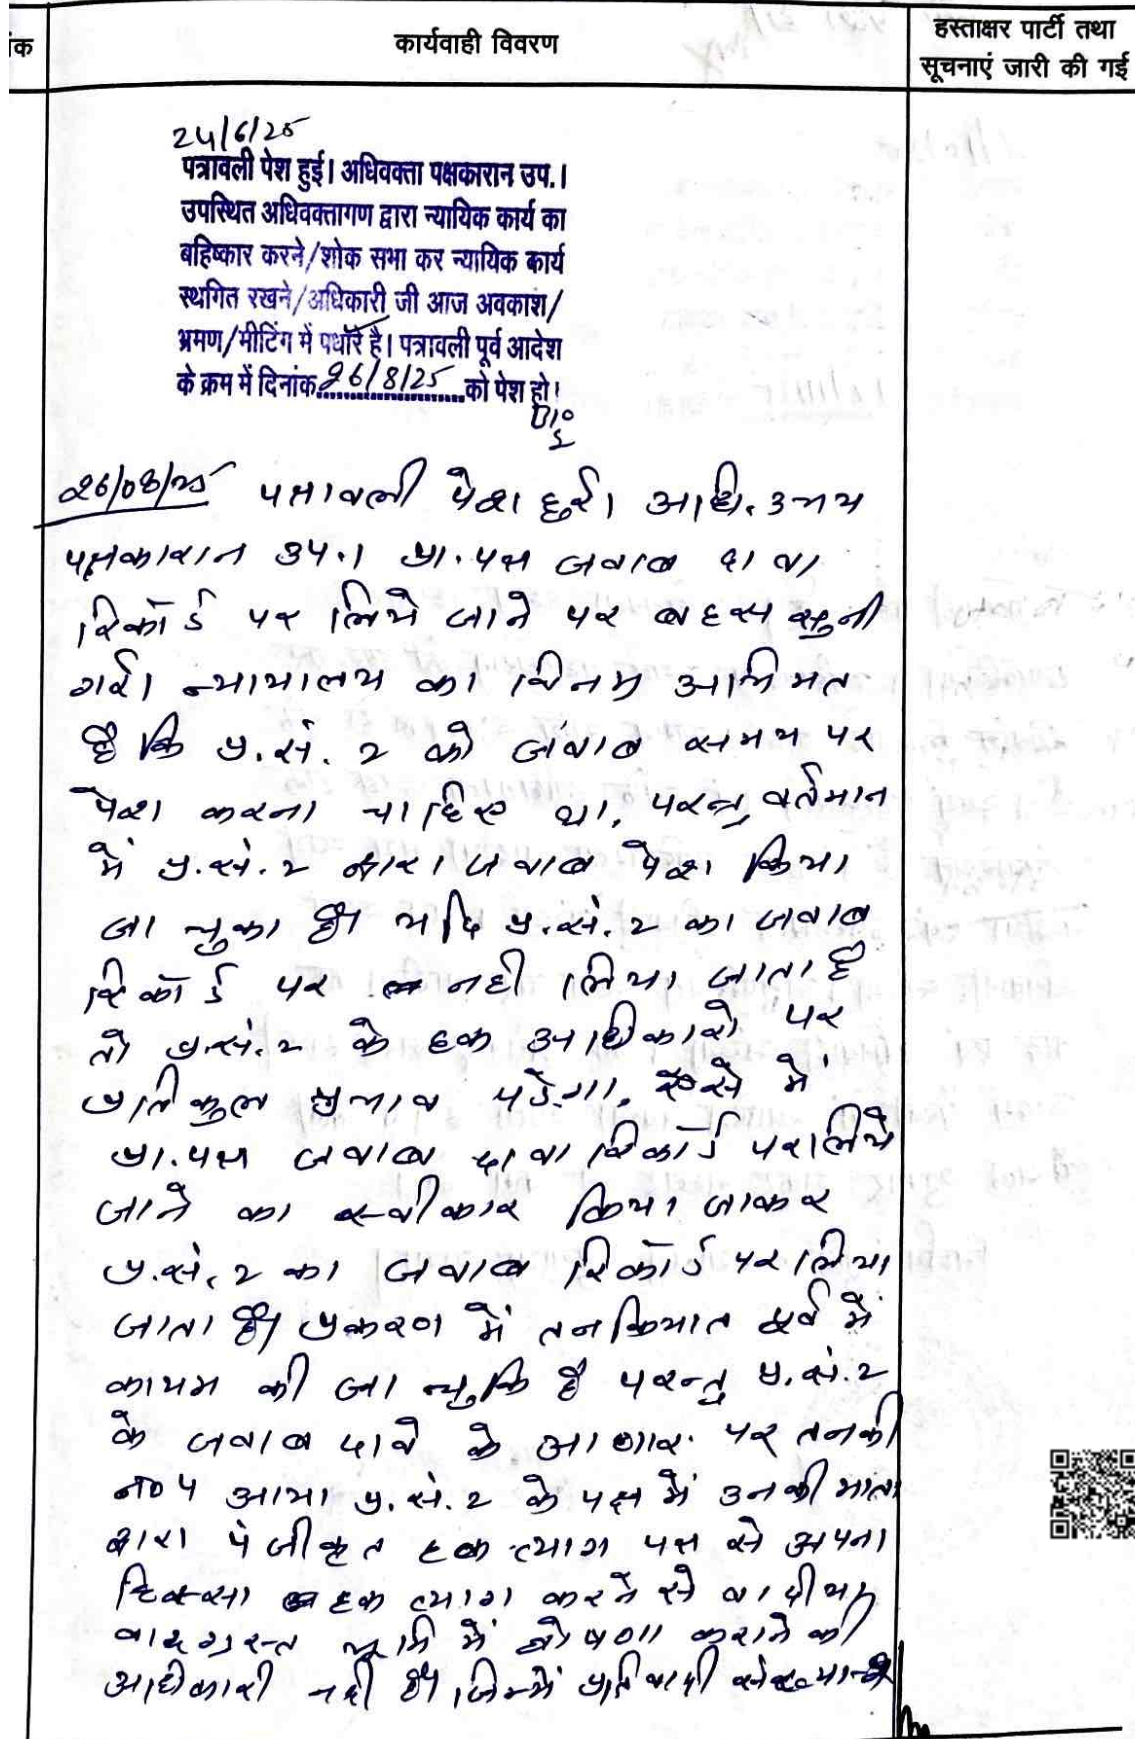 ंक
कार्यवाही विवरण
हस्ताक्षर पार्टी तथा
सूचनाएं जारी की गई
24/6/25
पत्रावली पेश हुई। अधिवक्ता पक्षकारान उप.।
उपस्थित अधिवक्तागण द्वारा न्यायिक कार्य का
बहिष्कार करने/शोक सभा कर न्यायिक कार्य
स्थगित रखने/अधिकारी जी आज अवकाश/
भ्रमण/मीटिंग में पधारें है। पत्रावली पूर्व आदेश
के क्रम में दिनांक 26/8/25 को पेश हो।
26/08/25 पत्रावली पेश हुई। अधि. उभय
पक्षकारान उप.। प्रा. पत्र जवाब दावा
रिकॉर्ड पर लिये जाने पर बहस सुनी
गई। न्यायालय का विनम्र अभिमत
है कि प्र.सं. 2 को जवाब समय पर
पेश करना चाहिए था, परन्तु वर्तमान
में प्र.सं. 2 द्वारा जवाब पेश किया
जा चुका है। यदि प्र.सं. 2 का जवाब
रिकॉर्ड पर नही लिया जाता है
तो प्र.सं. 2 के हक अधिकारो पर
प्रतिकुल प्रभाव पडेगा, ऐसे में
प्रा. पत्र जवाब दावा रिकॉर्ड पर लिये
जाने का स्वीकार किया जाकर
प्र.सं. 2 का जवाब रिकॉर्ड पर लिया
जाता है। प्रकरण में तनकियात पूर्व में
कायम की जा चुकि है परन्तु प्र.सं. 2
के जवाब दावे के आधार पर तनकी
न० 4 आया प्र.सं. 2 के पक्ष में उनकी माता
द्वारा पंजीकृत हक त्याग पत्र से अपना
हिस्सा हक त्याग करने से वादीया
वादग्रस्त भूमि में घोषणा कराने की
अधिकारी नही है। जिम्में प्रतिवादी